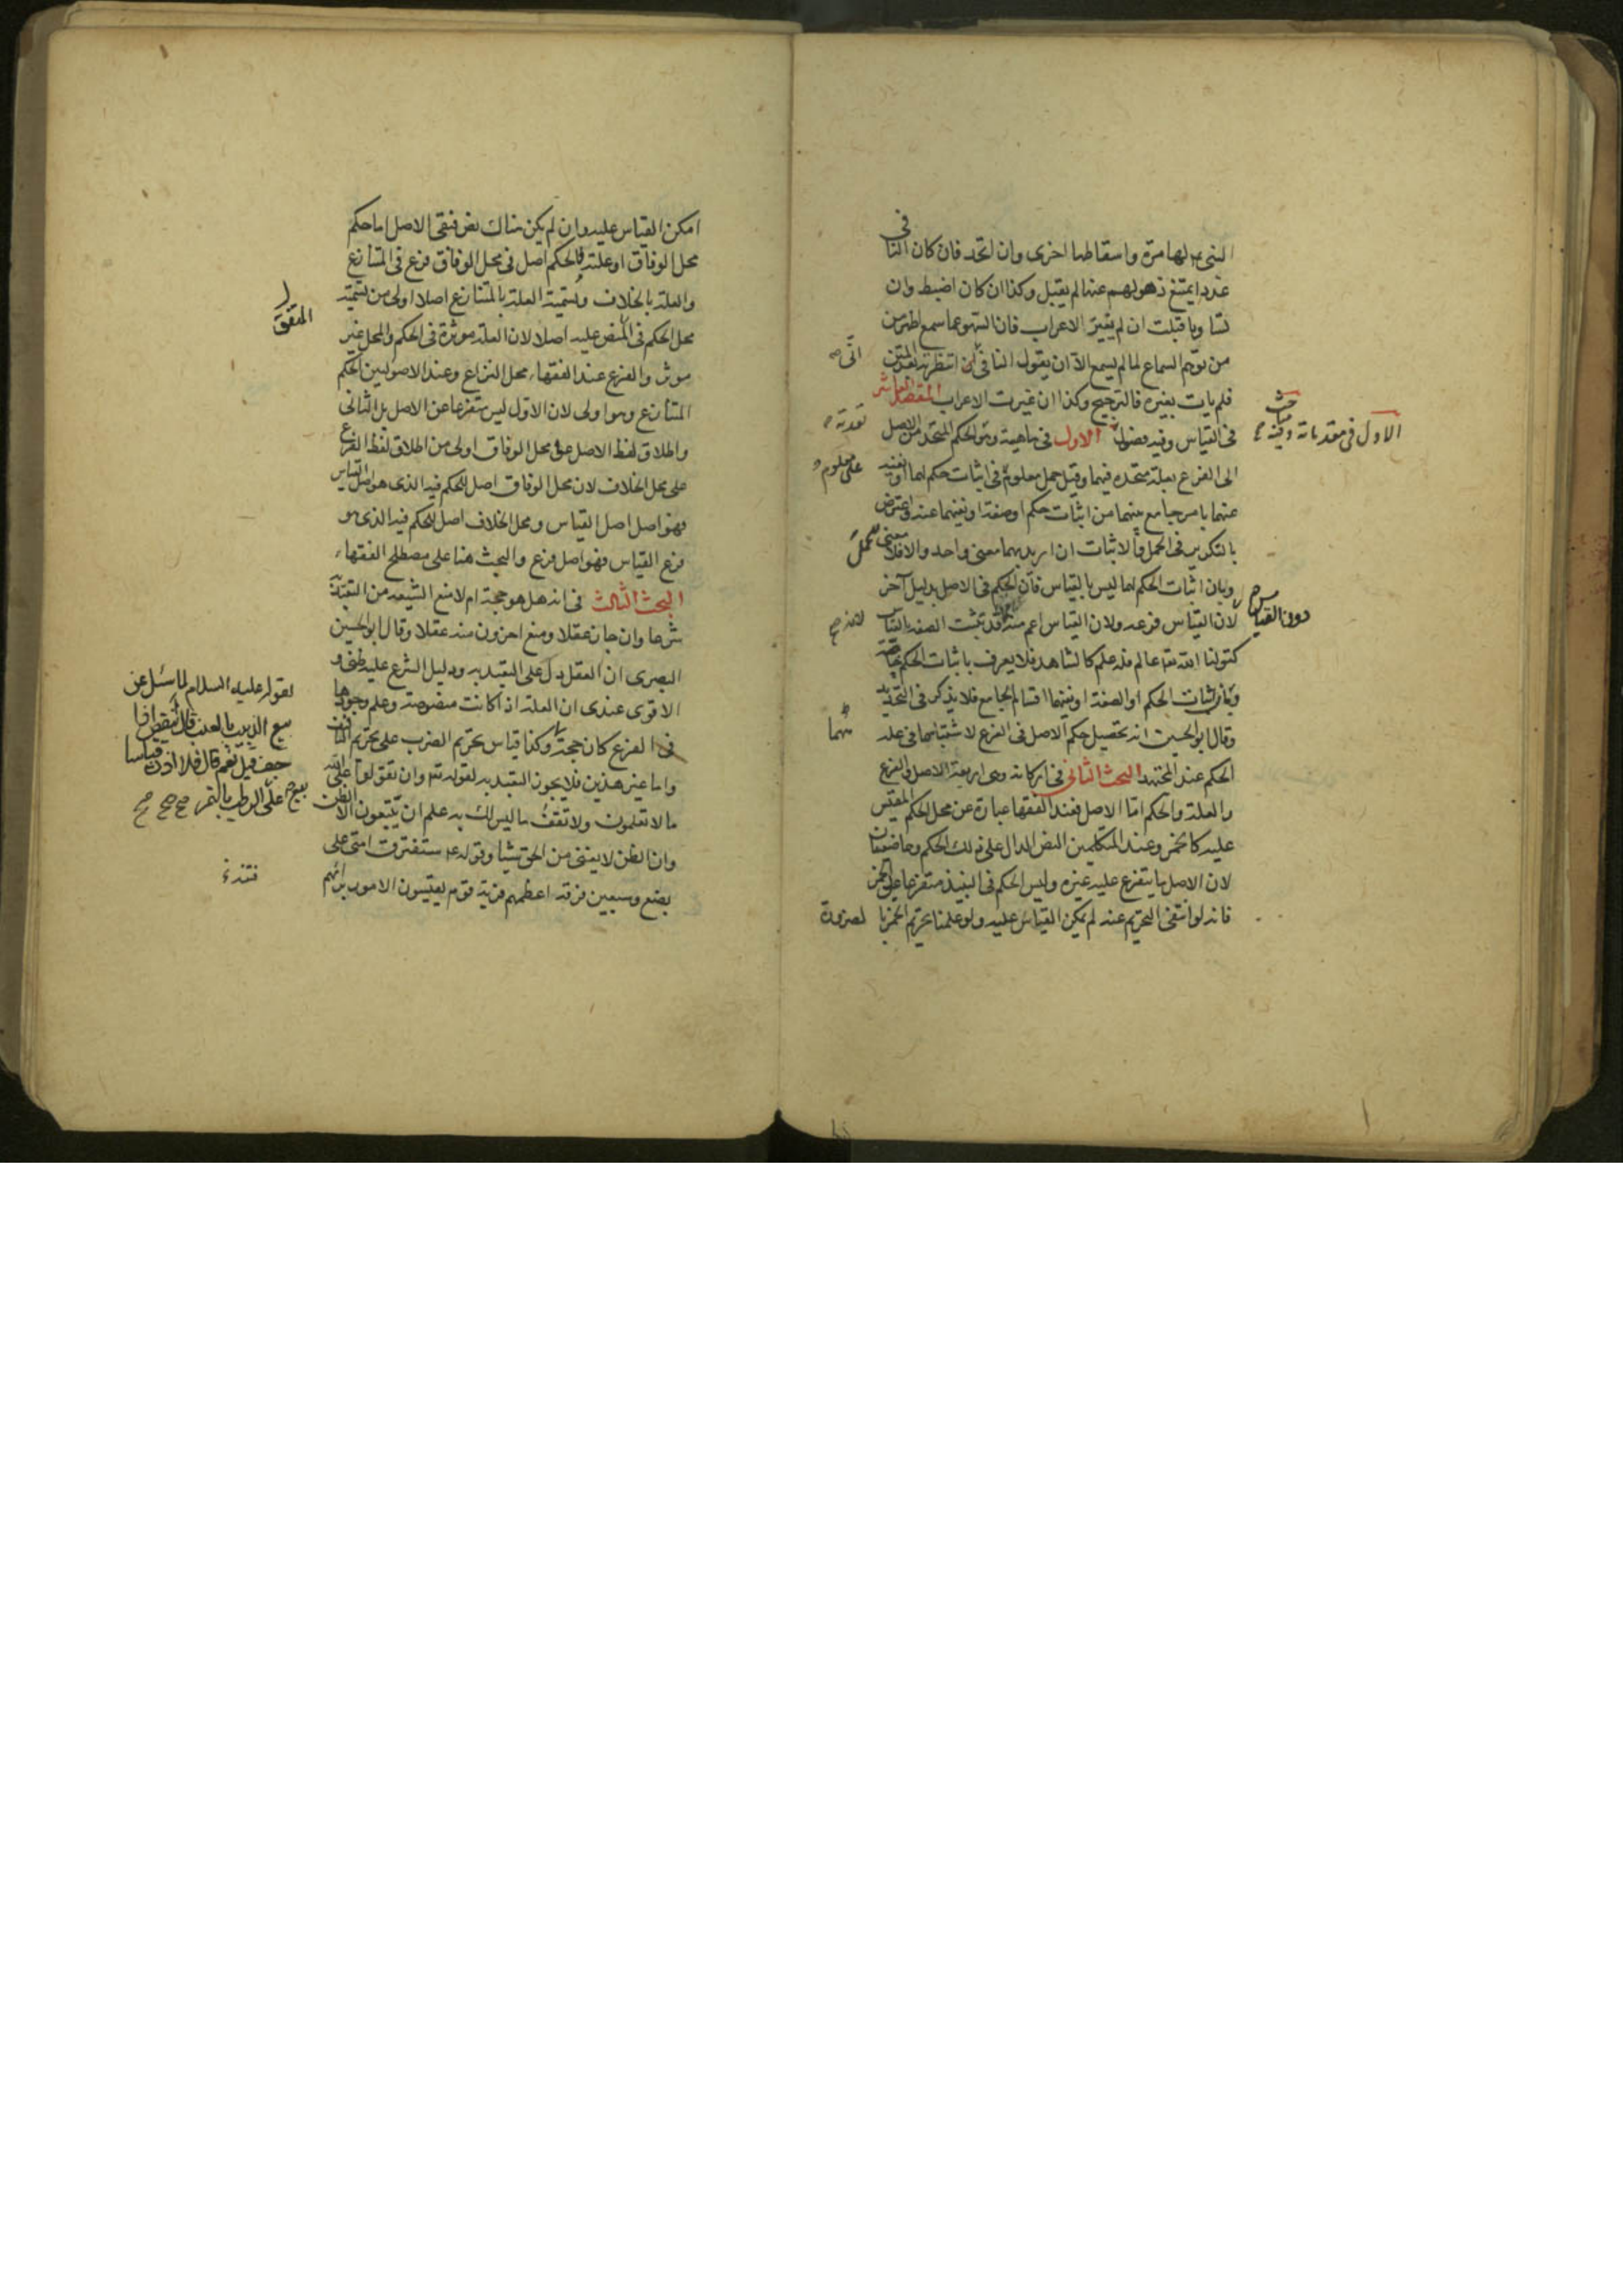 النبي ع لها مرة واسقاطها اخرى وان اتحد فان كان النافي
عددا يمتنع ذهولهم عنها لم يقبل وكذا ان كان اضبط وان
تساويا قبلت ان لم يتغير الاعراب فان السهو عما سمع اظهر من
من توهم السماع لما لم يسمع الا ان يقول النافي انتظرته بعد المتن
انى
فلم يات بغيره فالترجيح وكذا ان غيرت الاعراب المقصد العاشر
في القياس وفيه فصول الاول في ماهيته وهو الحكم المتحد من الاصل
الاول في مقدماته وفيه مباحث
تعدية
الى الفرع بعلة متحدة فيهما وقيل حمل معلوم في اثبات حكم لهما او نفيه
على معلوم
عنهما بامر جامع بينهما من اثبات حكم او صفة او نفيهما عنه واعترض
بالتكرير في الحمل والاثبات ان اريد بهما معنى واحد والا فلا معنى
وبان اثبات الحكم لهما ليس بالقياس فان الحكم في الاصل بدليل آخر
لان القياس فرعه ولان القياس اعم منه قد تثبت الصفة بالقياس
دون القياس
كقولنا الله تعالى عالم فله علم كالشاهد فلا يعرف باثبات الحكم
وبان اثبات الحكم او الصفة او نفيهما اقسام الجامع فلا يذكر في التحديد
وقال ابو الحسين انه تحصيل حكم الاصل في الفرع لاشتباههما في علة
الحكم عند المجتهد البحث الثاني في اركانه وهي اربعة الاصل والفرع
والعلة والحكم اما الاصل فعند الفقها عبارة عن محل الحكم المقيس
عليه كالخمر وعند المتكلمين النص الدال على ذلك الحكم وهما ضعيفان
لان الاصل ما يتفرع عليه غيره وليس الحكم في النبيذ متفرعا على الخمر
فانه لو انتفى التحريم عنه لم يمكن القياس عليه ولو علمنا تحريم الخمر بالضرورة
امكن القياس عليه وان لم يكن هناك نص فبقي الاصل اما حكم
محل الوفاق او علته فالحكم اصل في محل الوفاق فرع في المتنازع
والعلة بالخلاف وتسمية العلة بالمتنازع اصلا اولى من تسمية
المتفق
محل الحكم في النص عليه اصلا لان العلة موثرة في الحكم والمحل غير
موثر والفرع عند الفقهاء محل النزاع وعند الاصوليين الحكم
المتنازع وهو اولى لان الاول ليس متفرعا عن الاصل بل الثاني
واطلاق لفظ الاصل على محل الوفاق اولى من اطلاق لفظ الفرع
على محل الخلاف لان محل الوفاق اصل للحكم فيه الذي هو اصل القياس
فهو اصل اصل القياس ومحل الخلاف اصل للحكم فيه الذي هو
فرع القياس فهو اصل فرع والبحث هنا على مصطلح الفقهاء
البحث الثالث في انه هل هو حجة ام لا منع الشيعة من التعبد به
شرعا وان جاز عقلا ومنع اخرون منه عقلا وقال ابو الحسين
البصرى ان العقل دل على التعبد به ودليل الشرع عليه ظني و
الاقوى عندى ان العلة اذا كانت منصوصة وعلم وجودها
في الفرع كان حجة وكذا قياس تحريم الضرب على تحريم التافيف
لقوله عليه السلام لما سئل عن
بيع الزبيب بالعنب قال أينقص اذا
جف قيل نعم قال فلا اذن قياسا
على الرطب بالتمر صح صح صح
واما غير هذين فلا يجوز التعبد به لقوله تعالى وان تقولوا على الله
ما لا تعلمون ولا تقف ما ليس لك به علم ان يتبعون الا الظن
وان الظن لا يغني من الحق شيئا وقوله ع ستفترق امتي على
بضع وسبعين فرقة اعظمهم فتنة قوم يقيسون الامور برائهم
فتنة